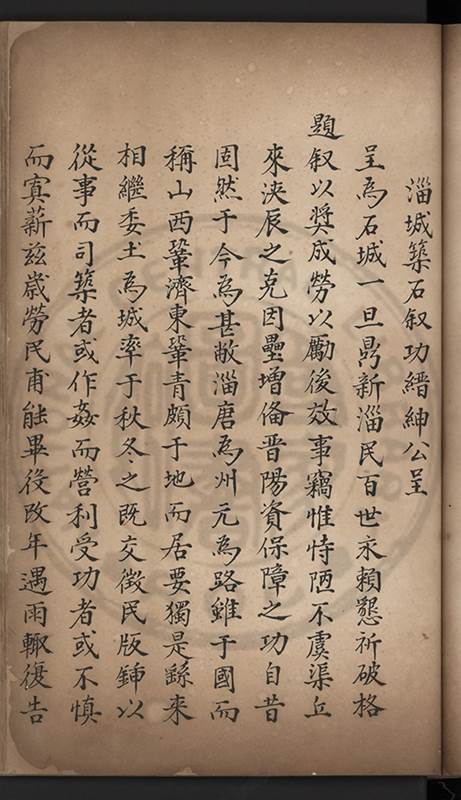 淄城築石叙功縉紳公呈
呈為石城一旦鼎新淄民百世永賴懇祈破格
題叙以奬成勞以勵後效事竊惟恃陋不虞渠丘
來浹辰之克因壘增俻晋陽資保障之功自昔
固然于今為甚敝淄唐為州元為路雖于國而
稱山西鞏濟東鞏青頗于地而居要獨是繇來
相繼委土為城率于秋冬之既交徵民版鍤以
從事而司築者或作姦而營利受功者或不慎
而寘薪兹嵗勞民甫能畢役改年遇雨輙復告